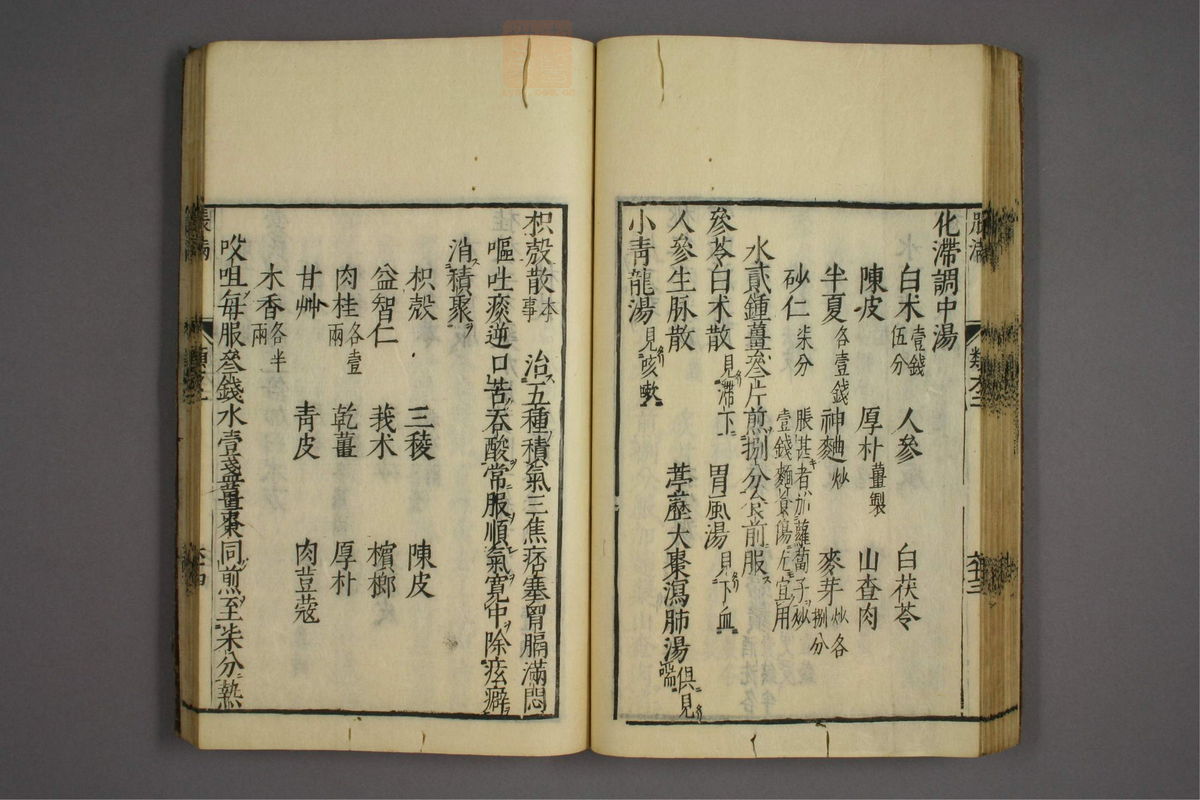 化滯調中湯
白朮壹錢伍分　人參　白茯苓
陳皮　厚朴薑製　山查肉
半夏各壹錢　神麯炒　麥芽炒各捌分
砂仁柒分　脹甚者加蘿蔔子炒壹錢麵食傷尤宜用
水貳鍾薑叄片煎捌分食前服
參苓白朮散見滯下　胃風湯見下血
人參生脉散　葶藶大棗瀉肺湯俱見喘
小靑龍湯見咳嗽
枳殻散本事　治五種積氣三焦痞塞胷膈滿悶
嘔吐痰逆口苦吞酸常服順氣寬中除痃癖
消積聚
枳殻　三稜　陳皮
益智仁　莪朮　檳榔
肉桂各壹兩　乾薑　厚朴
甘艸　靑皮　肉荳蔻
木香各半兩
㕮咀每服叄錢水壹盞薑棗同煎至柒分熱